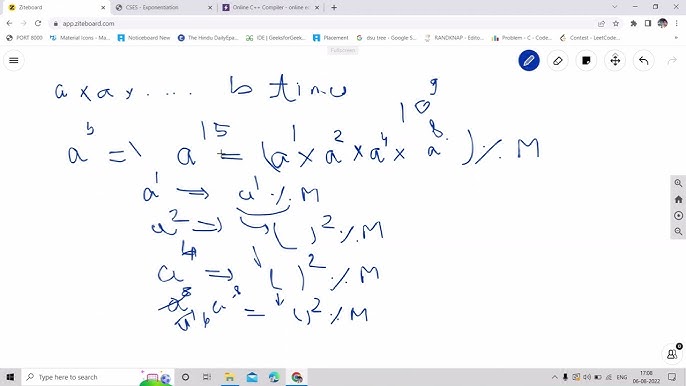 Ziteboard
CSES - Exponentiation
Online C++ Compiler - online ed
app.ziteboard.com
PORT 8000
Material Icons - Ma
Noticeboard New
The Hindu DailyEpa
IDE | GeeksforGeek
dsu tree - Google S
RANDKNAP - Editor
Problem - C - Codef
Contest - LeetCode
Fullscreen
a x a x . . . . b times
10^9
a^b => a^15 = (a^1 x a^2 x a^4 x a^8) % M
a^1 → a^1 % M
a^2 => ( )^2 % M
a^4 => ( )^2 % M
a^8 = ( )^2 % M
Type here to search
ENG
17:08
06-08-2022